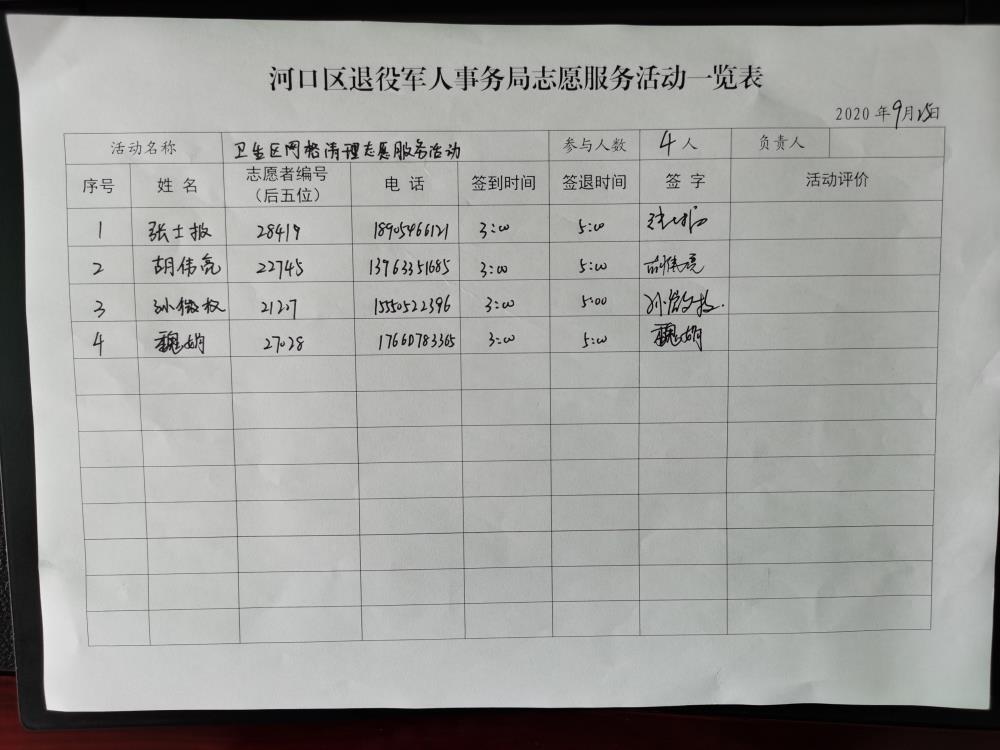 河口区退役军人事务局志愿服务活动一览表
2020年9月25日
活动名称 卫生区网格清理志愿服务活动 参与人数 4人 负责人
序号 姓名 志愿者编号（后五位） 电话 签到时间 签退时间 签字 活动评价
1 张士报 28419 18905466121 3:00 5:00
2 胡伟亮 22745 13763351685 3:00 5:00 胡伟亮
3 孙微权 21207 15550522396 3:00 5:00
4 魏娟 27028 17660783365 3:00 5:00 魏娟